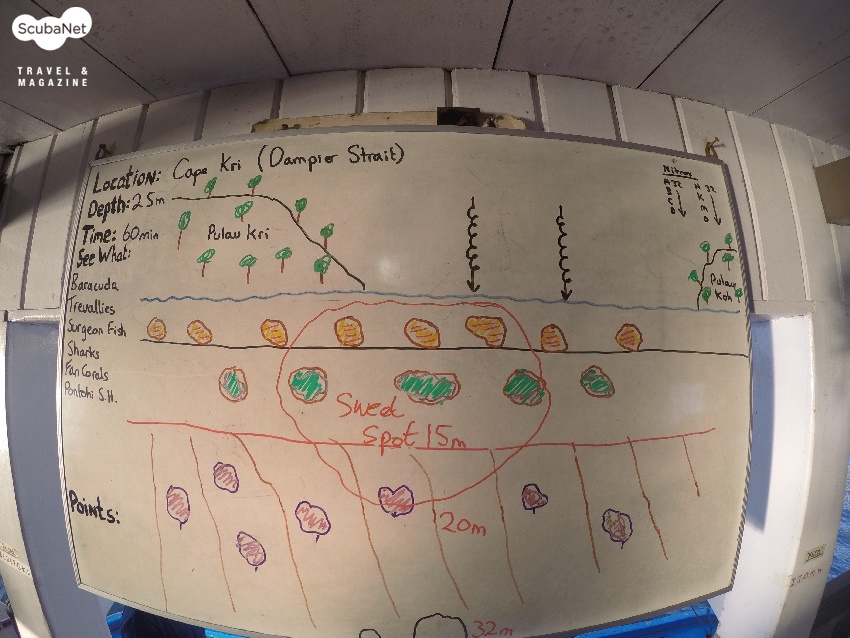 ScubaNet
TRAVEL &
MAGAZINE
Location: Cape Kri (Dampier Strait)
Depth: 25m
Time: 60min
See What:
Baracuda
Trevallies
Surgeon Fish
Sharks
Fan Corals
Pontohi S.H.
Points:
Pulau Kri
Nitrox
A 32
B
C
D
Pulau
Koh
Sweet
Spot 15m
20m
32m